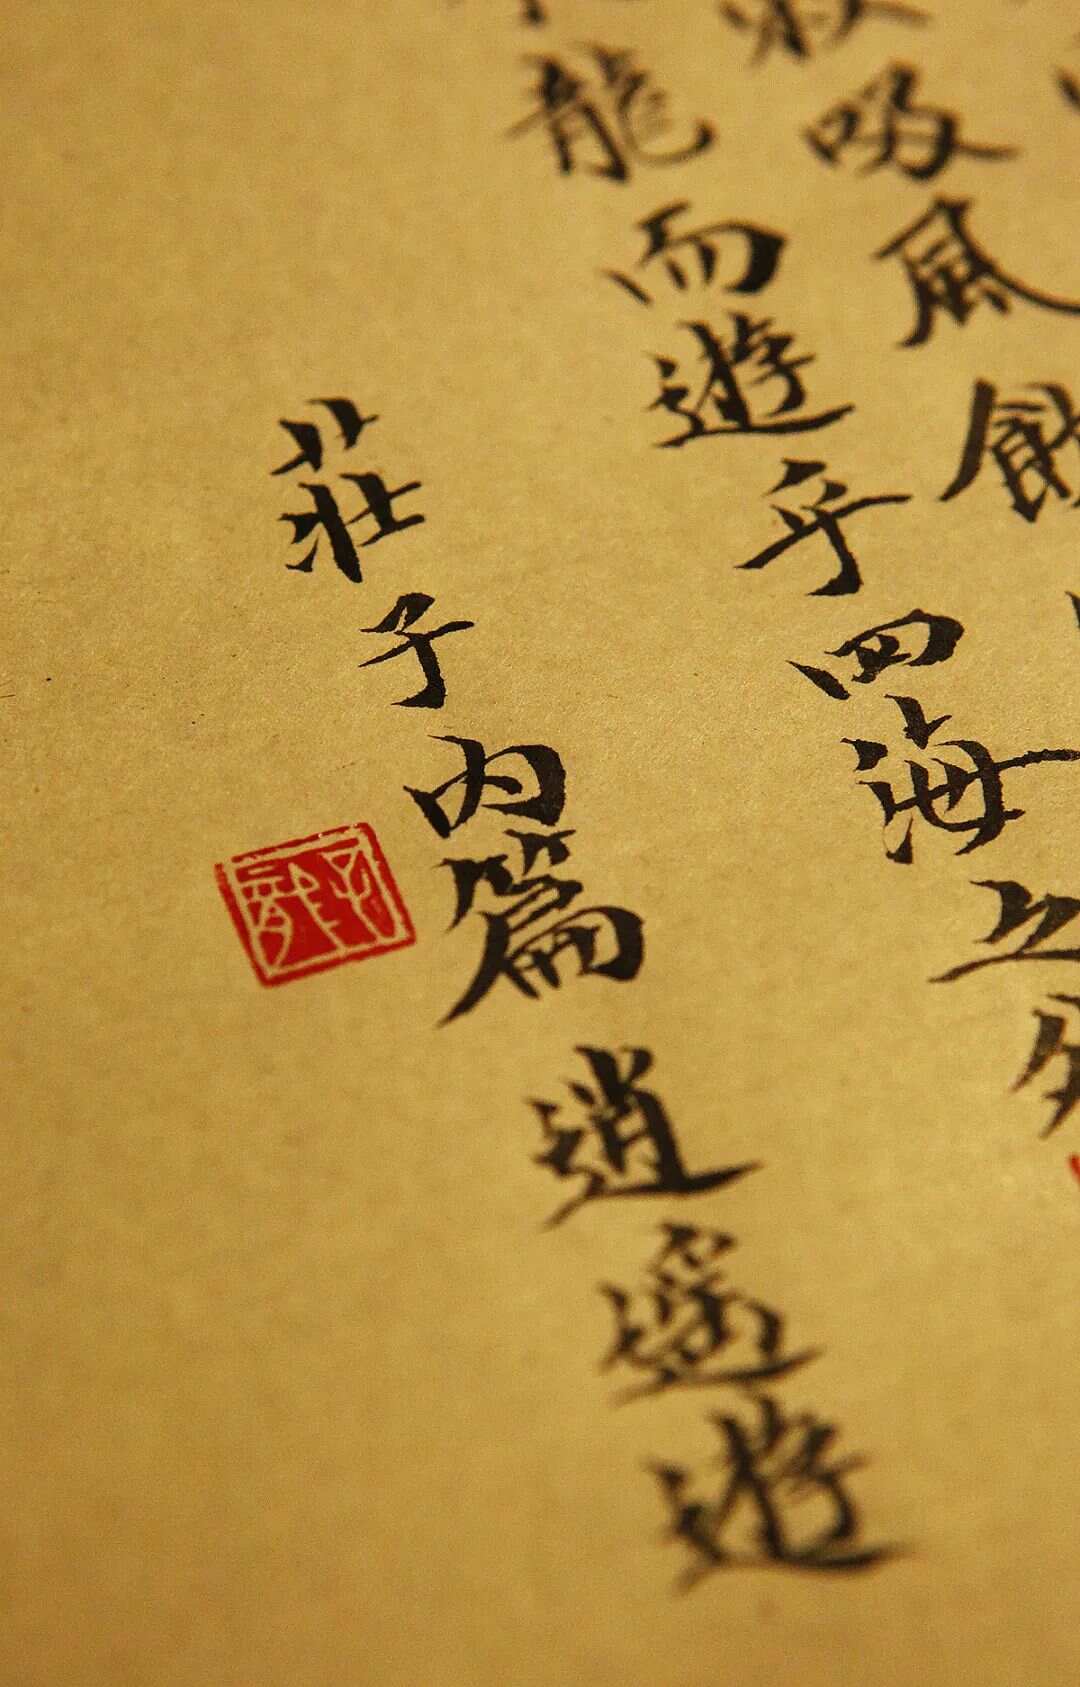 吸風飲
龍而遊乎四海之外
莊子內篇 逍遙遊